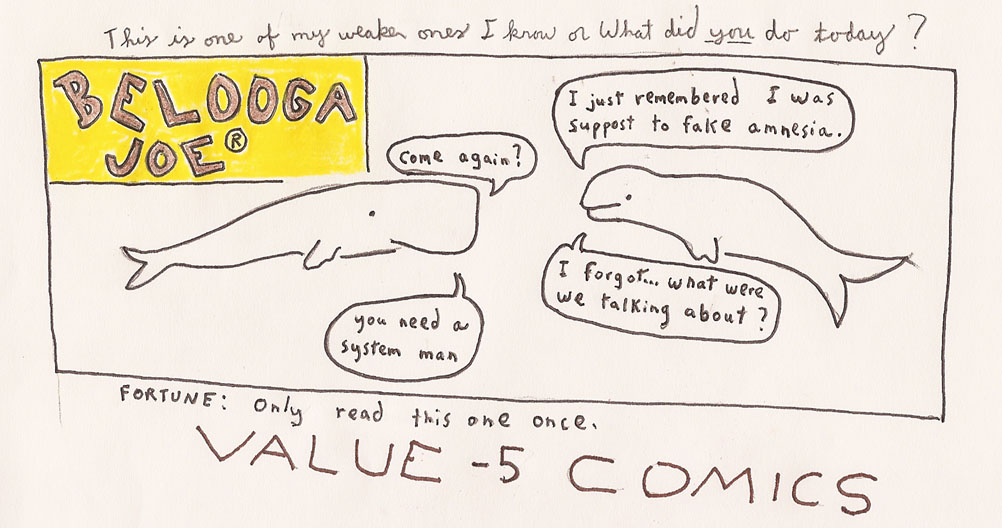 This is one of my weaker ones I know or What did you do today?
BELOOGA
JOE®
I just remembered I was
suppost to fake amnesia.
come again?
I forgot... what were
we talking about?
you need a
system man
FORTUNE: Only read this one once.
VALUE -5 COMICS